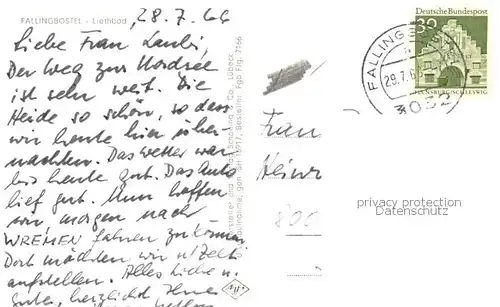 FALLINGBOSTEL - Liethbad
28.7.66
Liebe Frau Laubi,
Der Weg zur Nordsee
ist sehr weit. Die
Heide so schön, so dass
wir heute hier über-
nachten. Das Wetter war
bis heute gut. Das Auto
lief gut. Nun hoffen
wir morgen nach
WREMEN fahren zu können
Dort möchten wir n/Zelt
aufstellen. Alles Liebe u.
Gute, herzlichst Ihre
Lübeck
Frau
Heinr
800
Deutsche Bundespost
30
FLENSBURG/SCHLESWIG
FALLINGB
29.7.6
3032
privacy protection
Datenschutz